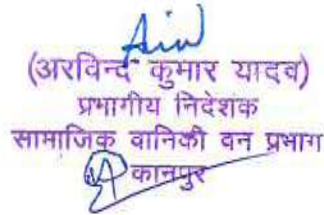 (अरविन्द कुमार यादव)
प्रभागीय निदेशक
सामाजिक वानिकी वन प्रभाग
कानपुर